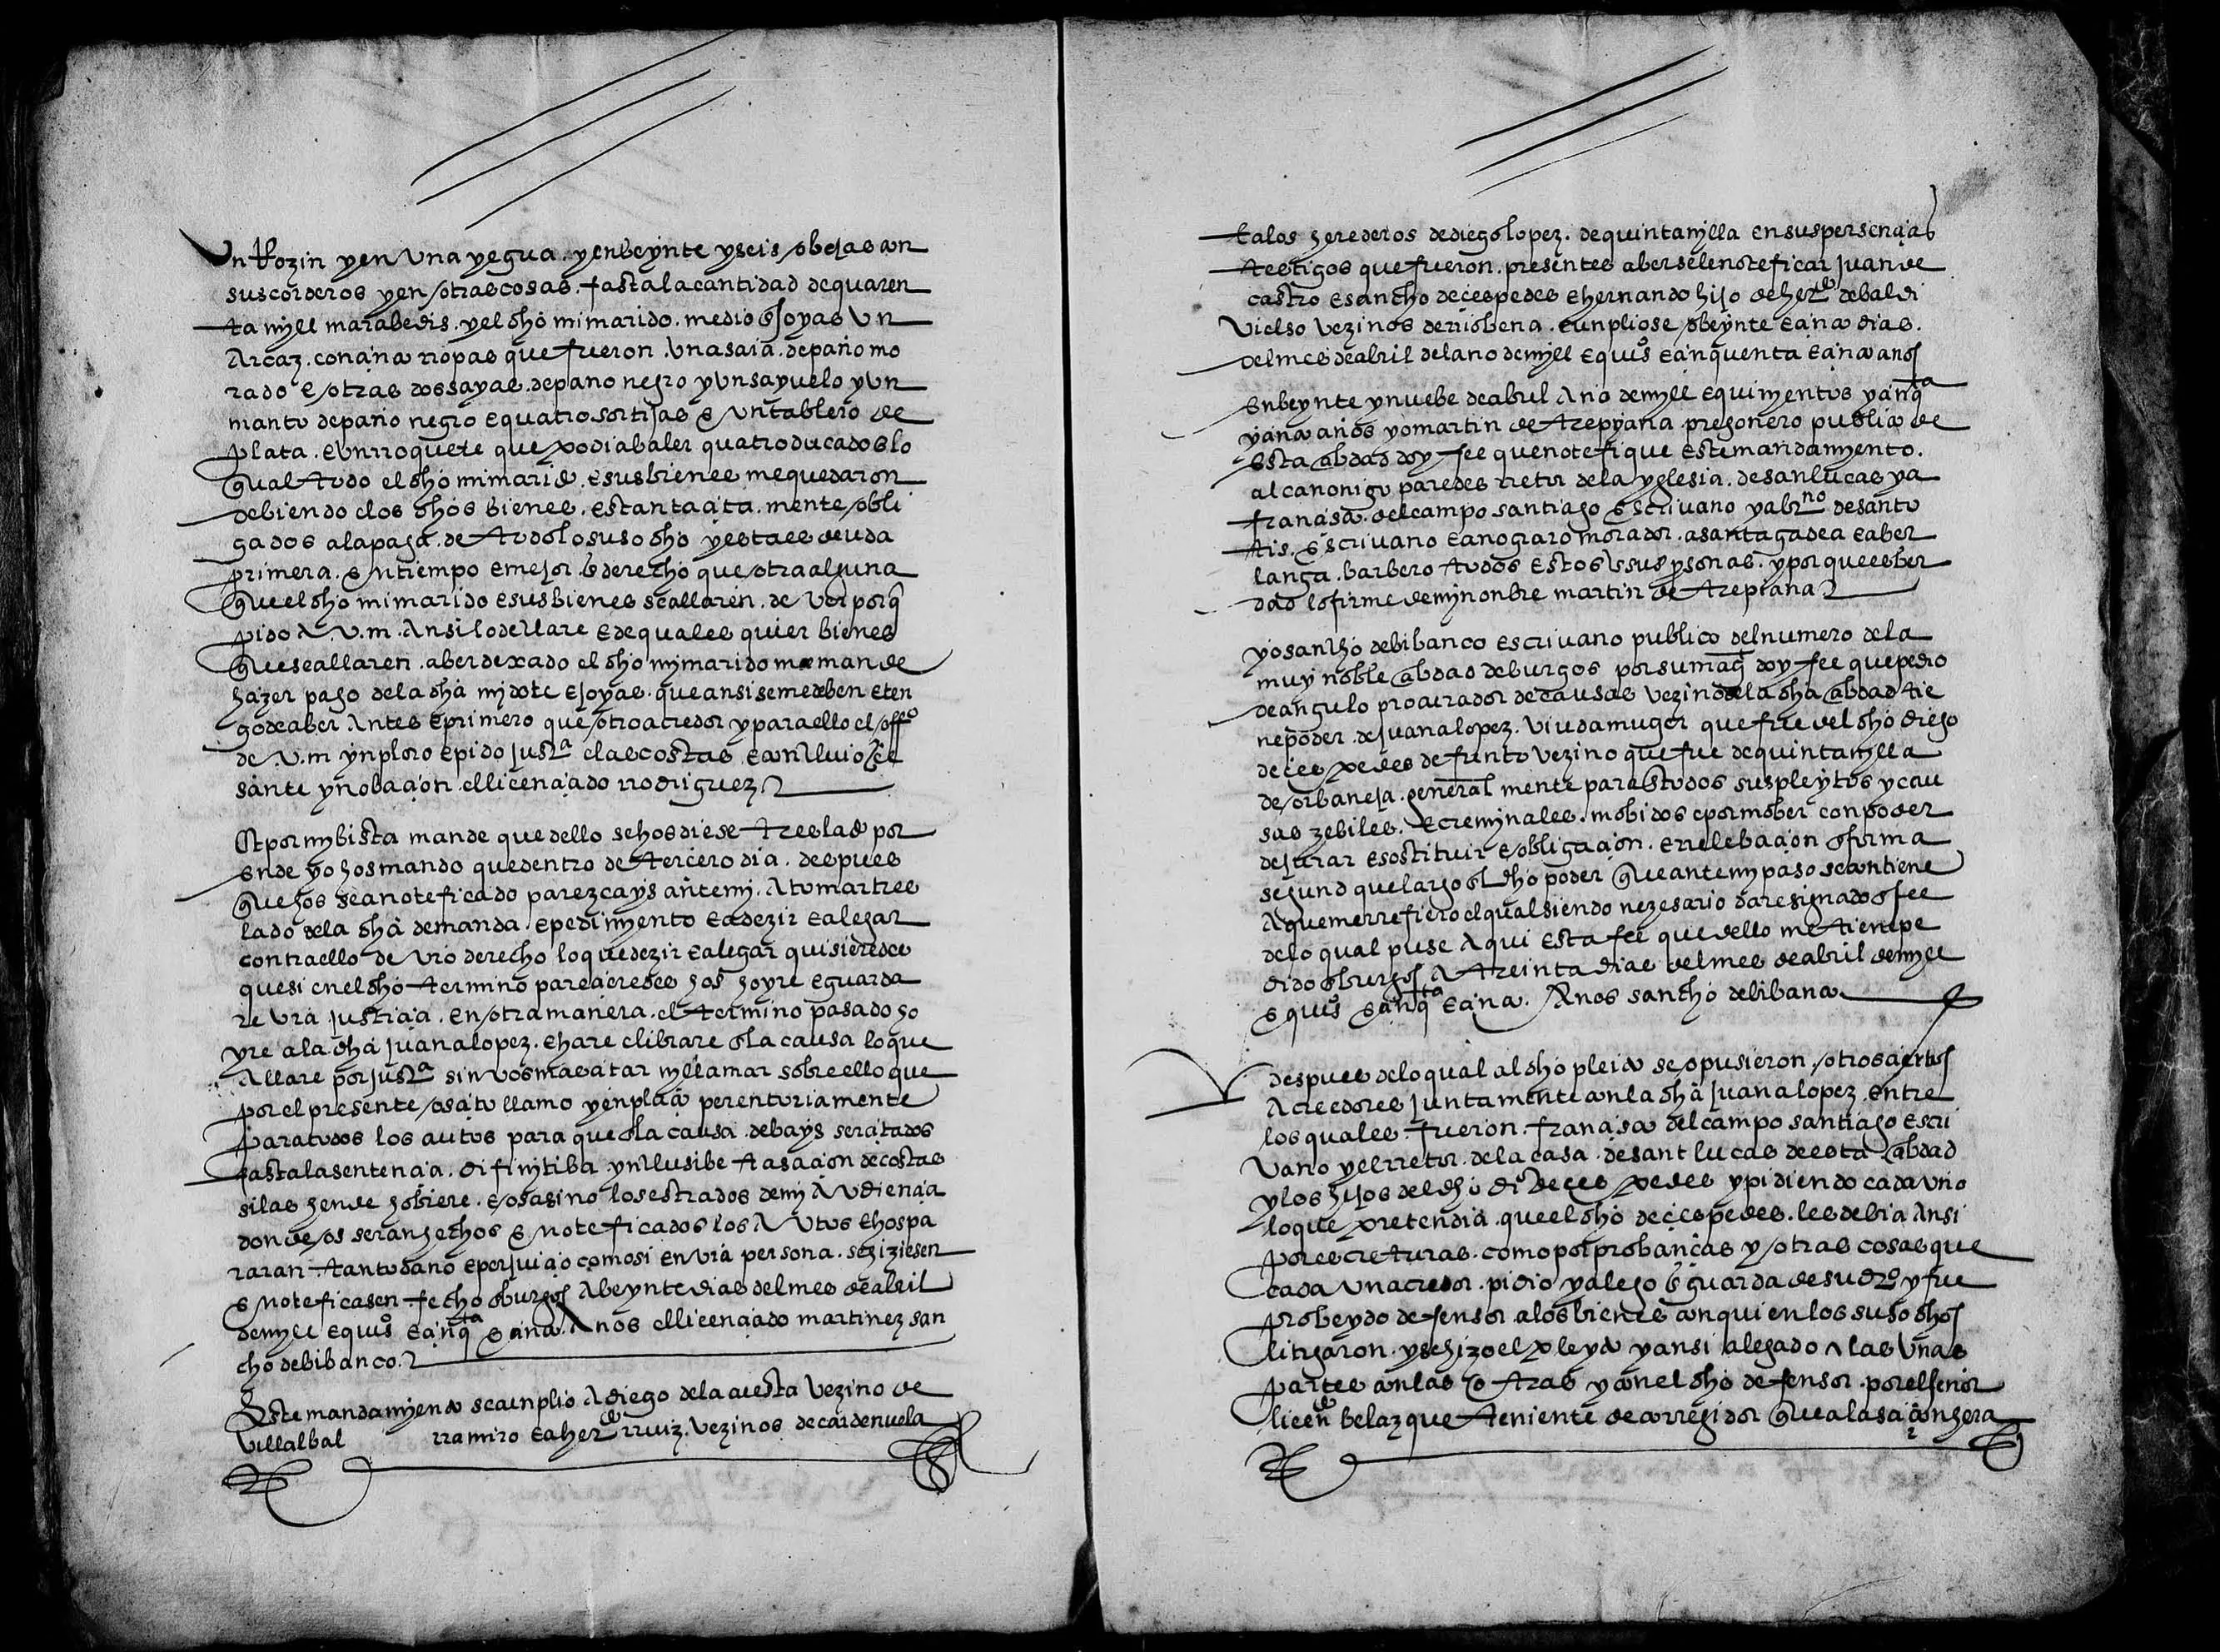 Un Rozin y en una yegua. y en beynte y seis obejas con
sus corderos y en otras cosas. fasta la cantidad de quaren
ta myll marabedis. y el dho mi marido. me dio e joyas un
Arcaz. con cinco rropas que fueron. una saia. de paño mo
rado e otras dos sayas. de pano negro y un sayuelo y un
manto de paño negro e quatro sortijas e un tablero de
plata. e un rroquete que podia baler quatro ducados lo
qual todo el dho mi marido. e sus bienes me quedaron
debiendo e los dhos bienes. estan tacita. mente obli
gados a la paga. de todo lo suso dho y esta es deuda
primera. en tiempo e mejor derecho que otra alguna
que el dho mi marido e sus bienes se allaren. de ver porq
pido a v.m. Ansi lo declare e de quales quier bienes
que se allaren. aber dexado el dho my marido me mande
hazer pago de la dha mj dote e joyas. que ansi se me deben e ten
go de aber Antes e primero que otro acredor y para ello el offo
de .v.m ynploro e pido justa e las costas e conclluio ce
sante ynobacion. el licenciado rrodriguez
E por my bista mande que dello se hos diese treslado por
ende yo hos mando que dentro de tercero dia. despues
que hos sea noteficado parezcays ante mj. A tomar tres
lado de la dha demanda. e pedimyento e a dezir e alegar
contra ello de vro derecho lo que dezir e alegar quisieredes
que si en el dho termino parecieredes hos hoyre e guarda
re vra justicia. en otra manera. el termino pasado ho
yre a la dha juana lopez. e hare e librare la causa lo que
Allare por justa sin vos mas citar ny llamar sobre ello que
por el presente os cito llamo y enplaço perentoriamente
para todos los autos para que la causa. debays ser citados
fasta la sentencia. difinytiba ynclusibe tasacion de costas
si las hende hobiere. e os asino los estrados de my Audiencia
donde os seran hechos e noteficados los Autos e hos pa
raran tanto daño e perjuicio como si en vra persona. se hiziesen
e noteficasen. fecho burgos A beynte dias del mes de abril
de myll e quis e cinqta e cinco. Anos el licenciado martinez san
cho de bibanco.
Este mandamyento se cunplio A diego de la cuesta vezino de
villalbal rramiro e a herdo rruiz. vezinos de cardenuela
e a los herederos de diego lopez. de quintanylla en sus personas
testigos que fueron. presentes a berse lenoteficar juan de
castro e sancho de cespedes e hernando hijo de herdo de baldi
vielso vezinos de riobena. cunpliose beynte e cinco dias.
del mes de abril del ano de myll e quis e cinquenta e cinco anos
En beynte y nuebe de abril Ano de myll e quinyentos y cinqta
y cinco años yo martin de trepiana pregonero publico de
esta cibdad doy fee que notefique este mandamyento.
al canonigo paredes rretor de la yglesia. de san lucas y a
francisco. del campo santiago escrivano y a brno de santo
tis. escrivano e a nograro morador. a santa gadea e a ber
langa. barbero todos estos sus psonas. y por que es ber
dad lo firme de my nonbre martin de trepiana
yo sancho de bibanco escrivano publico del numero de la
muy noble cibdad de burgos por su magt doy fee que pedro
de angulo procurador de causas vezino de la dha cibdad tie
ne poder. de juana lopez. viuda muger que fue del dho diego
de cespedes defunto vezino que fue de quintanylla
de orbaneja. general mente para todos sus pleytos y cau
sas zebiles. e creminales. mobidos e por mober con poder
de jurar e sostituir e obligacion. e rrelebacion forma
segund que largo el dho poder que ante my paso se contiene
A que me rrefiero el qual siendo nezesario dare signado fee
de lo qual puse Aqui esta fee que dello me tiene pe
dido burgos A treinta dias del mes de abril de myll
e quis e cinqta e cinco. Anos sancho de libana
despues de lo qual al dho pleito se opusieron. otros ciertos
Acreedores juntamente con la dha juana lopez. entre
los quales. fueron. francisco del campo santiago escri
vano y el rretor. de la casa. de sant lucas de esta cibdad
y los hijos del dho do de cespedes y pidiendo cada uno
lo que pretendia. que el dho de cespedes. les debia Ansi
por escreturas. como por probanças y otras cosas que
cada un acredor. pidio y alego guarda de su dro y fue
probeydo defensor a los bienes con quien los suso dhos
litigaron. y se hizo el pleyto y ansi alegado las unas
partes con las otras y con el dho defensor. por el señor
licendo belazque teniente de corregidor que a la saçon hera